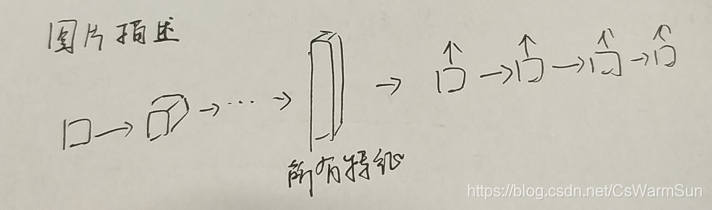 图片描述
所有特征
https://blog.csdn.net/CsWarmSun